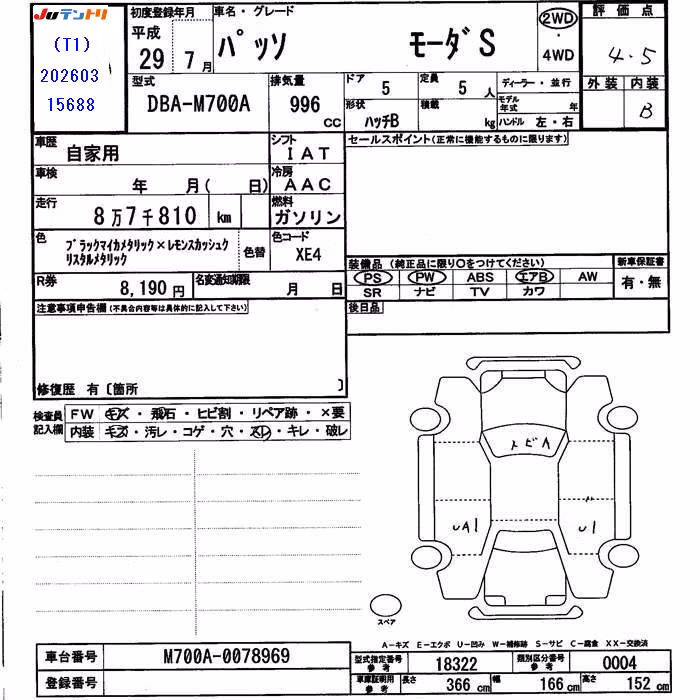 Juテントリ
(T1)
202603
15688
初度登録年月
平成
29年7月
車名・グレード
パッソ モーダS
2WD
・
4WD
評価点
4.5
外装 内装
B
型式
DBA-M700A
排気量
996
CC
ドア
5
定員
5人
形状
ハッチB
積載
kg
ディーラー・並行
モデル年式 年
ハンドル 左・右
車歴
自家用
シフト
IAT
車検
年 月( 日)
冷房
AAC
走行
8万7千810 km
燃料
ガソリン
色
ブラックマイカメタリック×レモンスカッシュク
リスタルメタリック
色替
色コード
XE4
R券
8,190円
名変通知期限
月 日
セールスポイント(正常に機能するものに限ります)
装備品(純正品に限り○をつけてください)
PS PW ABS エアB AW
SR ナビ TV カワ
新車保証書
有・無
後日品
注意事項申告欄(不具合内容等は具体的に記入して下さい)
修復歴 有〔箇所 〕
検査員
記入欄
FW キズ・飛石・ヒビ割・リペア跡・×要
内装 キズ・汚レ・コゲ・穴・スレ・キレ・破レ
トビA
UA1
U1
スペア
A-キズ E-エクボ U-凹み W-補修跡 S-サビ C-腐食 XX-交換済
車台番号
M700A-0078969
登録番号
型式指定番号
参考
18322
類別区分番号
参考
0004
車庫証明用
参考
長さ 366cm
幅 166cm
高さ 152cm